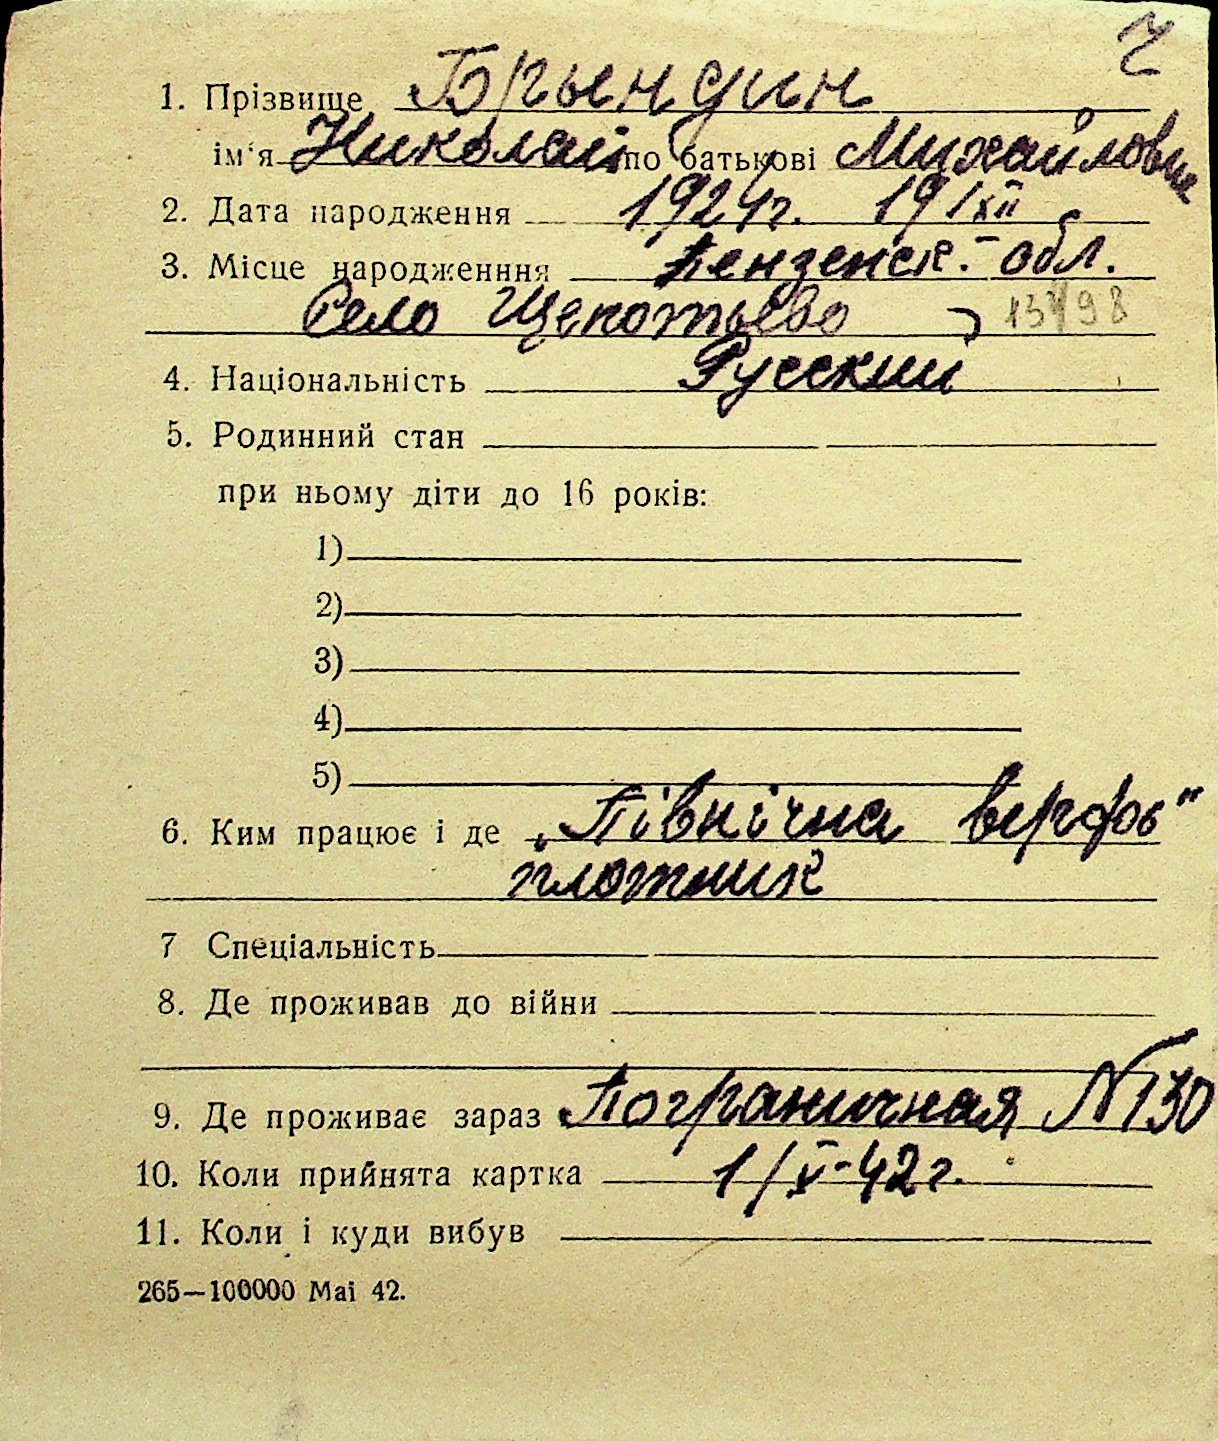 Ч
1. Прізвище Брындин
ім'я Николай по батькові Михайлович
2. Дата народження 1924г. 19/XII
3. Місце народженння Пензенск. обл.
Село Щепотьево 13798
4. Національність Русский
5. Родинний стан
при ньому діти до 16 років:
1)
2)
3)
4)
5)
6. Ким працює і де „Північна верфь"
плотник
7 Спеціальність
8. Де проживав до війни
9. Де проживає зараз Пограничная № 130
10. Коли прийнята картка 1/V-42г.
11. Коли і куди вибув
265—100000 Маі 42.